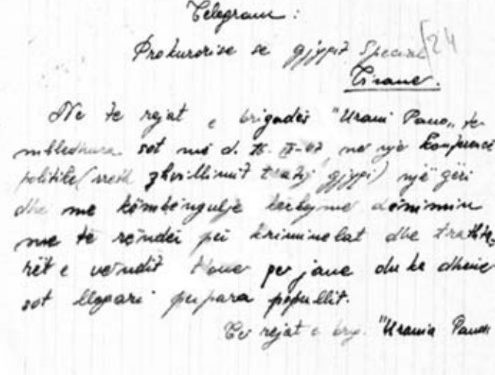 Telegram:
Prokurorise se gjyqit Special 24
Tirane.
Ne te rejat e brigades "Urani Pano" te
mbledhura sot më d. në një konferencë
politike (rreth zhvillimit të atij gjyqi) një zëri
dhe me këmbëngulje kërkojmë denimin
me të rëndë për kriminelat dhe tradhë
rët e vendit të cilët po jane duke dhënë
sot llogari perpara popullit.
Te rejat e brig. "Urania Pano"